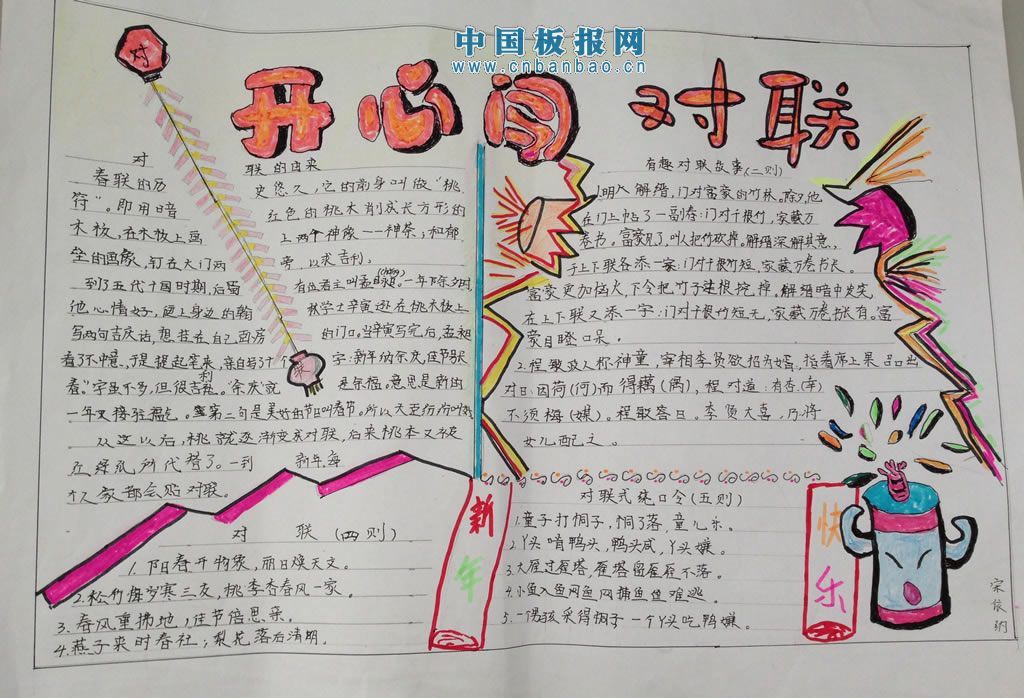 中国板报网
www.cnbanbao.cn
对
开心闯对联
对联的由来
春联的历史悠久，它的前身叫做“桃
符”。即用暗红色的桃木削成长方形的
木板，在木板上画上两个神像——神荼；和郁
垒的画像，钉在大门两旁，以求吉利；
到了五代十国时期，后蜀有位君主叫孟昶。一年下除夕时
他心情好，便上身边的翰林学士辛寅逊在桃木板上
写两句吉庆话，想挂在自己的门口。当辛寅写完后，孟昶
看了不中意，于是提起笔来，亲自写了
春”字虽不多，但很吉利。“余庆”就
一年又接
从这以后，桃就逐渐变成对联，后来桃木又被
红绿纸所代替了。一到新年，每
个人家都会贴对联。
对联（四则）
1.阳春开物象，丽日焕天文。
2.松竹梅岁寒三友，桃李杏春风一家。
3.春风重拂地；佳节倍思亲。
4.燕子来时春社；梨花落后清明。
有趣对联故事（二则）
1.明人解缙，门对富豪的竹林。除夕，他
在门上帖了一副春：门对千根竹，家藏万
卷书。富豪见了，叫人把竹砍掉。解缙深解其意，
于上下联各添一字：门对千根竹短，家藏万卷书长。
富豪更加恼火，下令把竹子连根挖掉，解缙暗中发笑，
在上下联又添一字：门对千根竹短无，家藏万卷书长有。富
豪目瞪口呆。
2.程敏政人称神童，宰相李贤欲招为婿，指着席上果品口出
对曰：因荷（何）而得藕（偶），程对道：有杏（幸）
不须梅（媒）。程敏答曰。李贤大喜，乃将
女儿配之。
对联式绕口令（五则）
1.童子打桐子，桐子落，童儿乐。
2.丫头啃鸭头，鸭头咸，丫头嫌。
3.大雁过雁塔，雁塔留雁雁不落。
4.小鱼入鱼网鱼网捕鱼鱼难逃。
5.一男孩采得桐子一个丫头吃鸭嫌。
新年
快乐